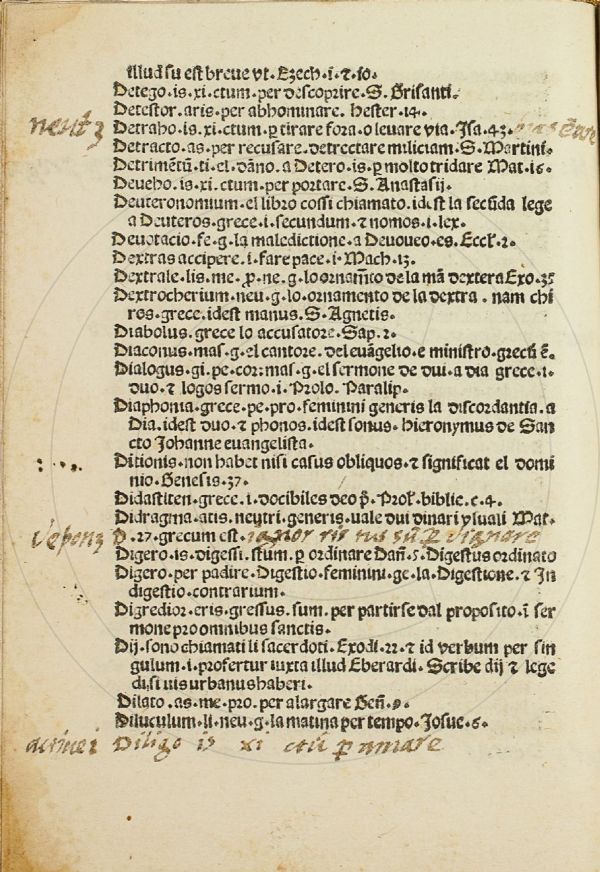 illud su est breue vt. Ezech. i. ⁊ .10.
Detego. is. xi. ctum. per descoprire. S. Brisanti.
Detestor. aris. per abhominare. Hester. 14.
Detraho. is. xi. ctum. ꝑ tirare fora. o leuare via. Jsa. 43.
Detracto. as. per recusare. detrectare miliciam. S. Martini.
Detrimētū. ti. el. dāno. a Detero. is. ꝑ molto tridare Mat. 16.
Deueho. is. xi. ctum. per portare. S. Anastasij.
Deuteronomium. el libro cossi chiamato. idest la secūda lege
a Deuteros. grece. i. secundum. ⁊ nomos. i. lex.
Deuotacio. fe. g. la maledictione. a Deuoueo. es. Eccl'. 2.
Dextras accipere. i. fare pace. i. Mach. 13.
Dextrale. lis. me. ꝓ. ne. g. lo ornam̄to de la mā dextera Exo. 35
Dextrocherium. neu. g. lo ornamento de la dextra. nam chi
ros. grece. idest manus. S. Agnetis.
Diabolus. grece lo accusatore. Sap. 2.
Diaconus. mas. g. el cantore. del euāgelio. e ministro. grecū ē.
Dialogus. gi. pe. cor. mas. g. el sermone de dui. a dia grece. i.
duo. ⁊ logos sermo. i. Prolo. Paralip.
Diaphonia. grece. pe. pro. feminini generis la discordantia. a
Dia. idest duo. ⁊ phonos. idest sonus. hieronymus de San
cto Johanne euangelista.
Ditionis. non habet nisi casus obliquos. ⁊ significat el domi
nio. Genesis. 37.
Didastiten. grece. i. docibiles deo ꝑ. Prol'. biblie. c. 4.
Didragma. atis. neutri. generis. uale dui dinari y suali Mat.
ꝑ. 27. grecum est.
Digero. is. digessi. stum. ꝑ ordinare Dan̄. 5. Digestus ordinato
Digero. per padire. Digestio. feminini. ge. la Digestione. ⁊ In
digestio. contrarium.
Digredior. eris. gressus. sum. per partirse dal proposito. ī ser
mone pro omnibus sanctis.
Dij. sono chiamati li sacerdoti. Exodi. 22. ⁊ id verbum per sin
gulum. i. profertur iuxta illud Eberardi. Scribe dij ⁊ lege
di, si uis urbanus haberi.
Dilato. as. me. pro. per alargare Gen̄. 9.
Diluculum. li. neu. g. la matina per tempo. Josue. 6.
Diligo is xi ctū ꝑ amare